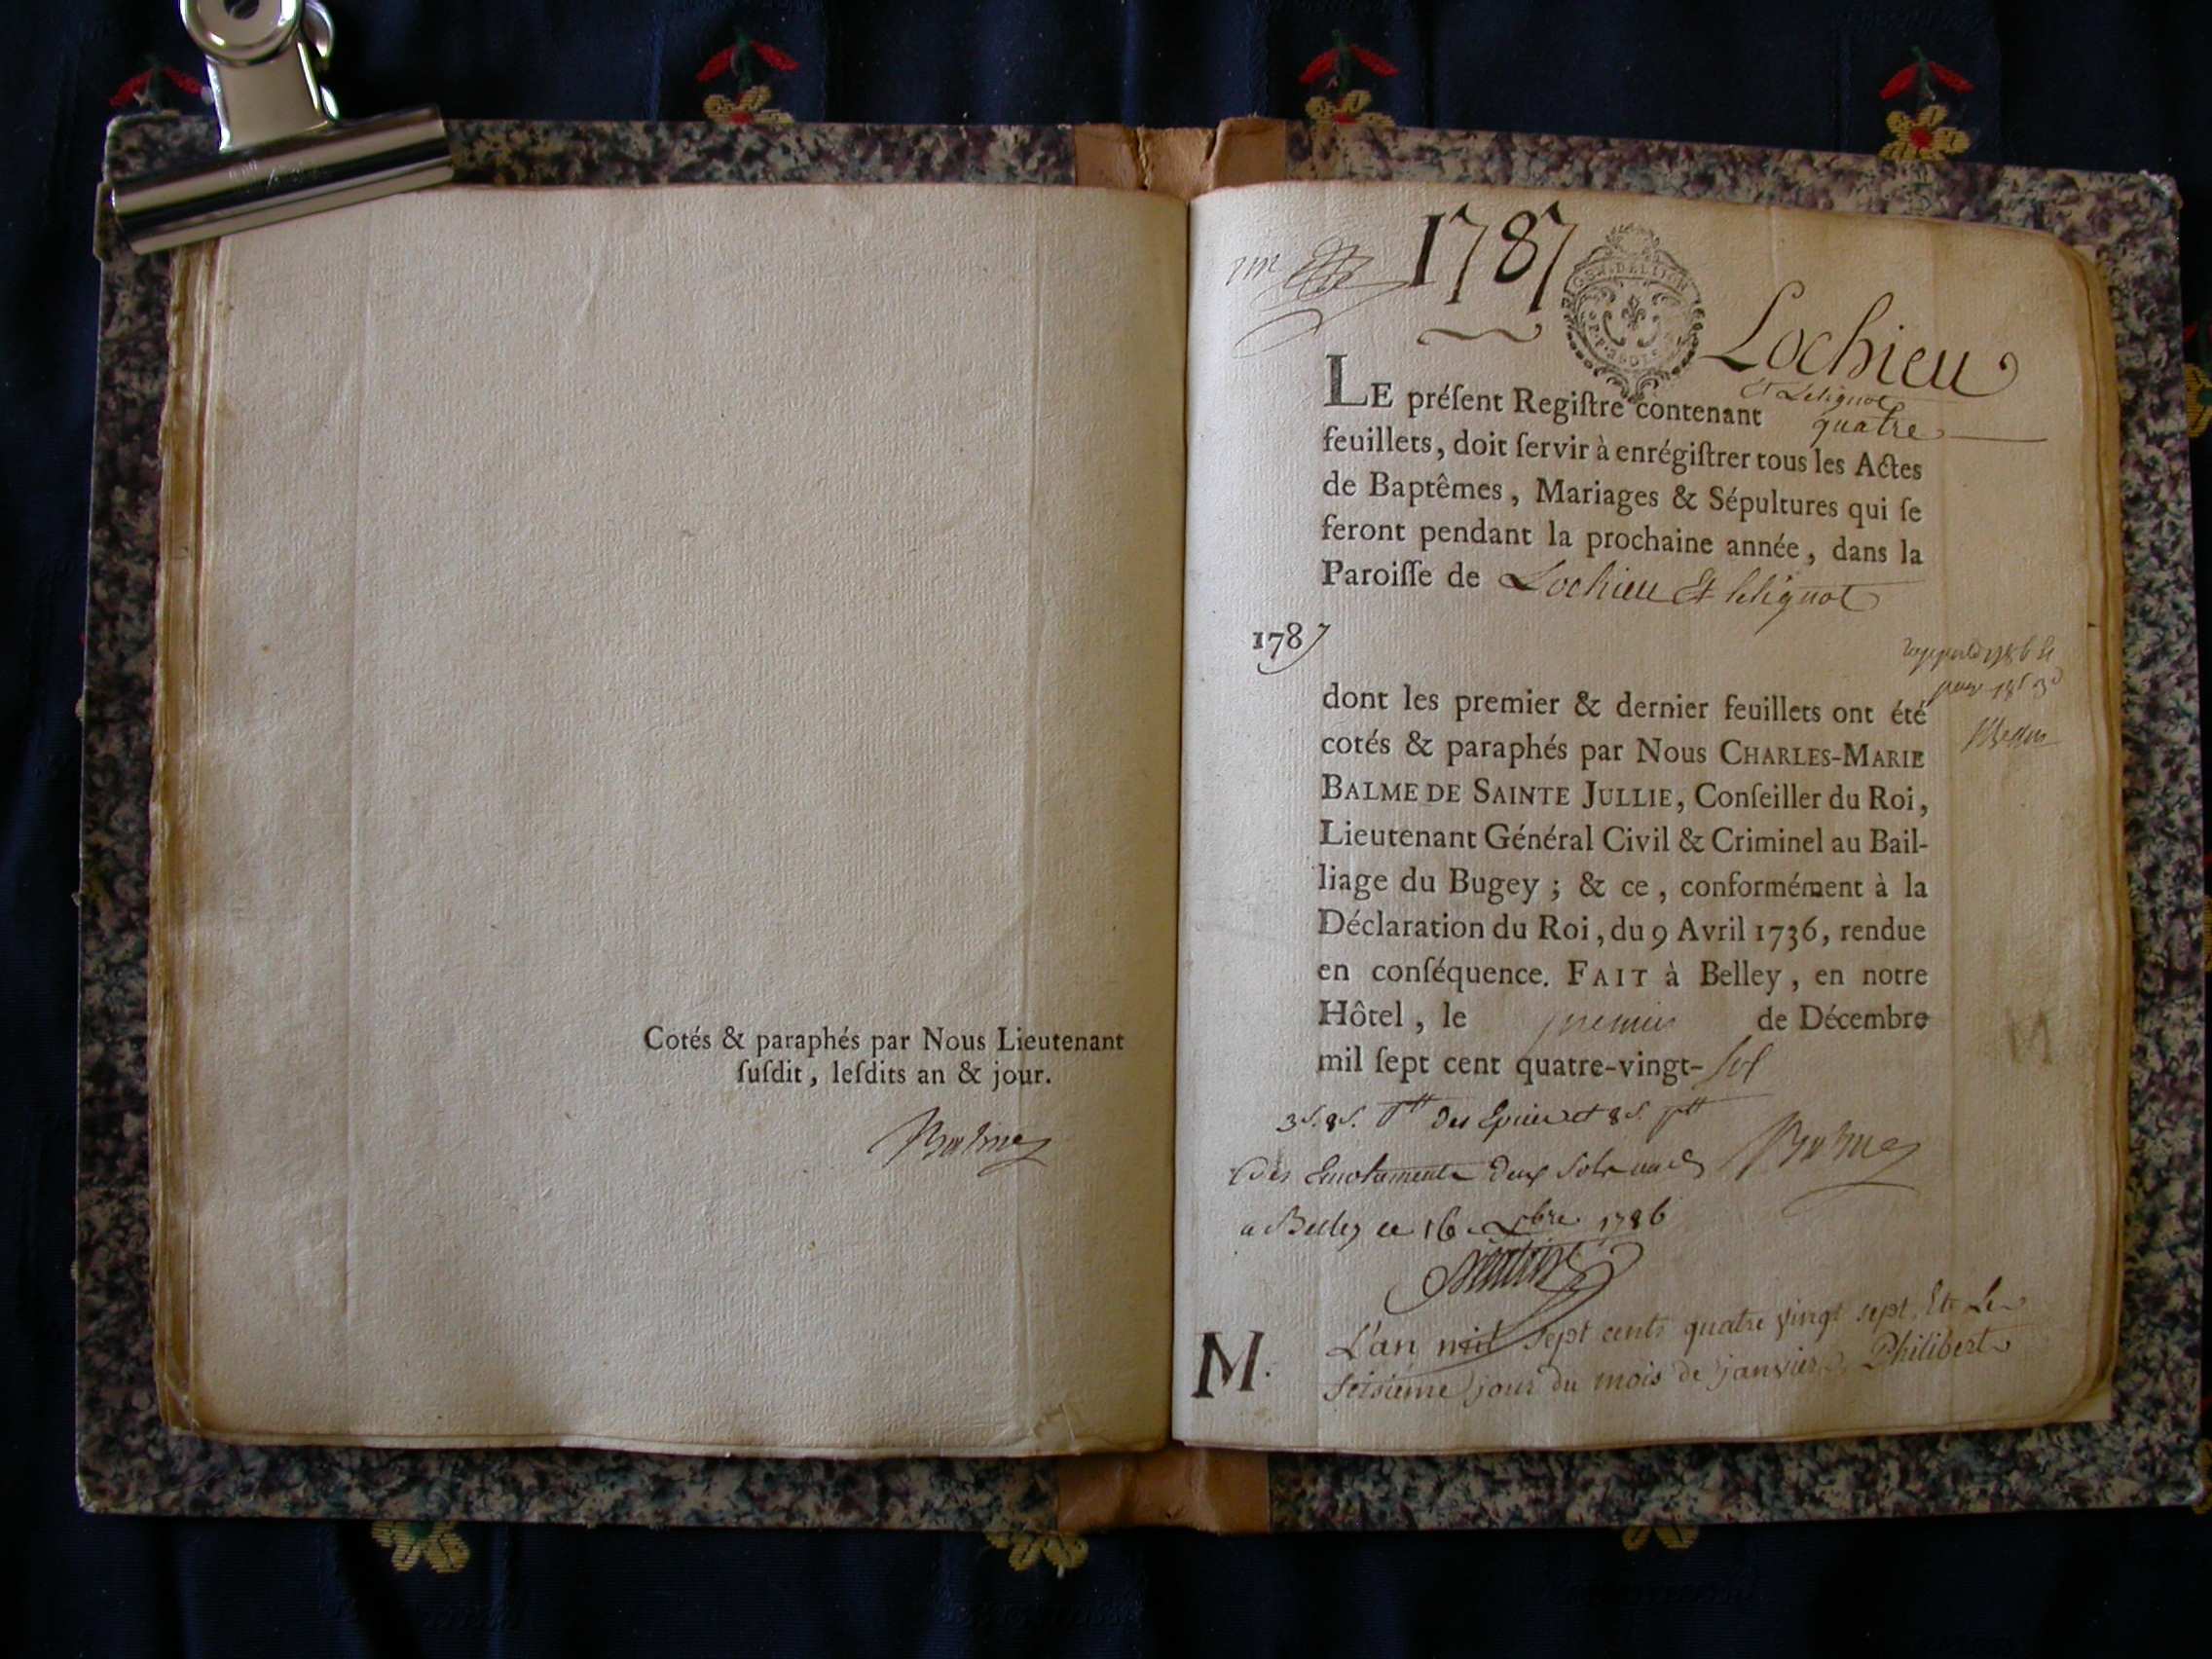 Cotés & paraphés par Nous Lieutenant
ſuſdit, leſdits an & jour.
Balme
1787
GEN. DE DIJON
Lochieu
et Lilignot
LE préſent Regiſtre contenant quatre
feuillets, doit ſervir à enrégiſtrer tous les Actes
de Baptêmes, Mariages & Sépultures qui ſe
feront pendant la prochaine année, dans la
Paroiſſe de Lochieu et lilignot
1787
dont les premier & dernier feuillets ont été
cotés & paraphés par Nous CHARLES-MARIE
BALME DE SAINTE JULLIE, Conſeiller du Roi,
Lieutenant Général Civil & Criminel au Bail-
liage du Bugey ; & ce, conformément à la
Déclaration du Roi, du 9 Avril 1736, rendue
en conſéquence. FAIT à Belley, en notre
Hôtel, le premier de Décembre
mil ſept cent quatre-vingt-
Balme
des Emoluments deux sols
a Belley ce 16 Xbre 1786
M. L'an mil sept cents quatre vingt sept. Et Le
seisieme jour du mois de janvier, Philibert